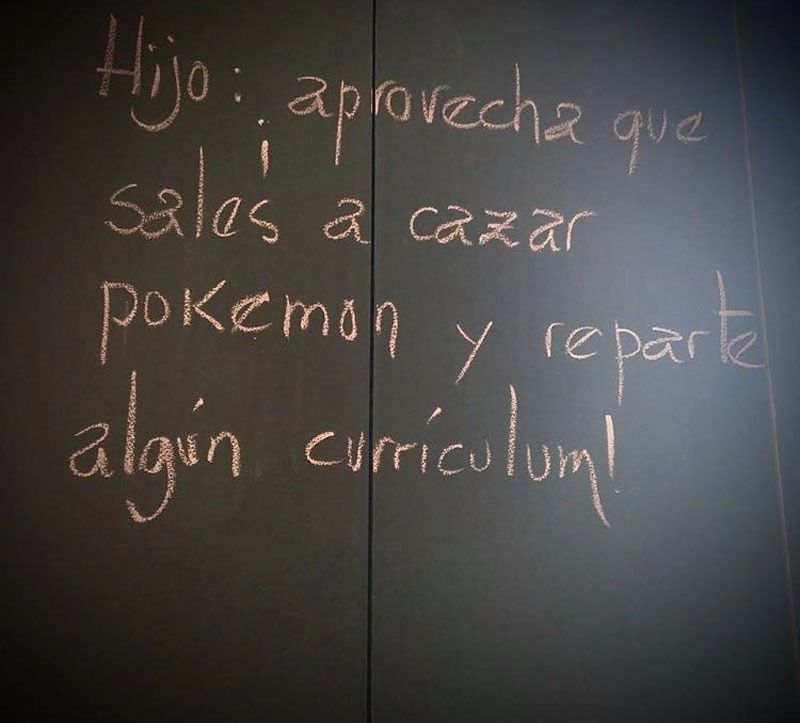 Hijo: ¡aprovecha que
sales a cazar
pokemon y reparte
algún currículum!